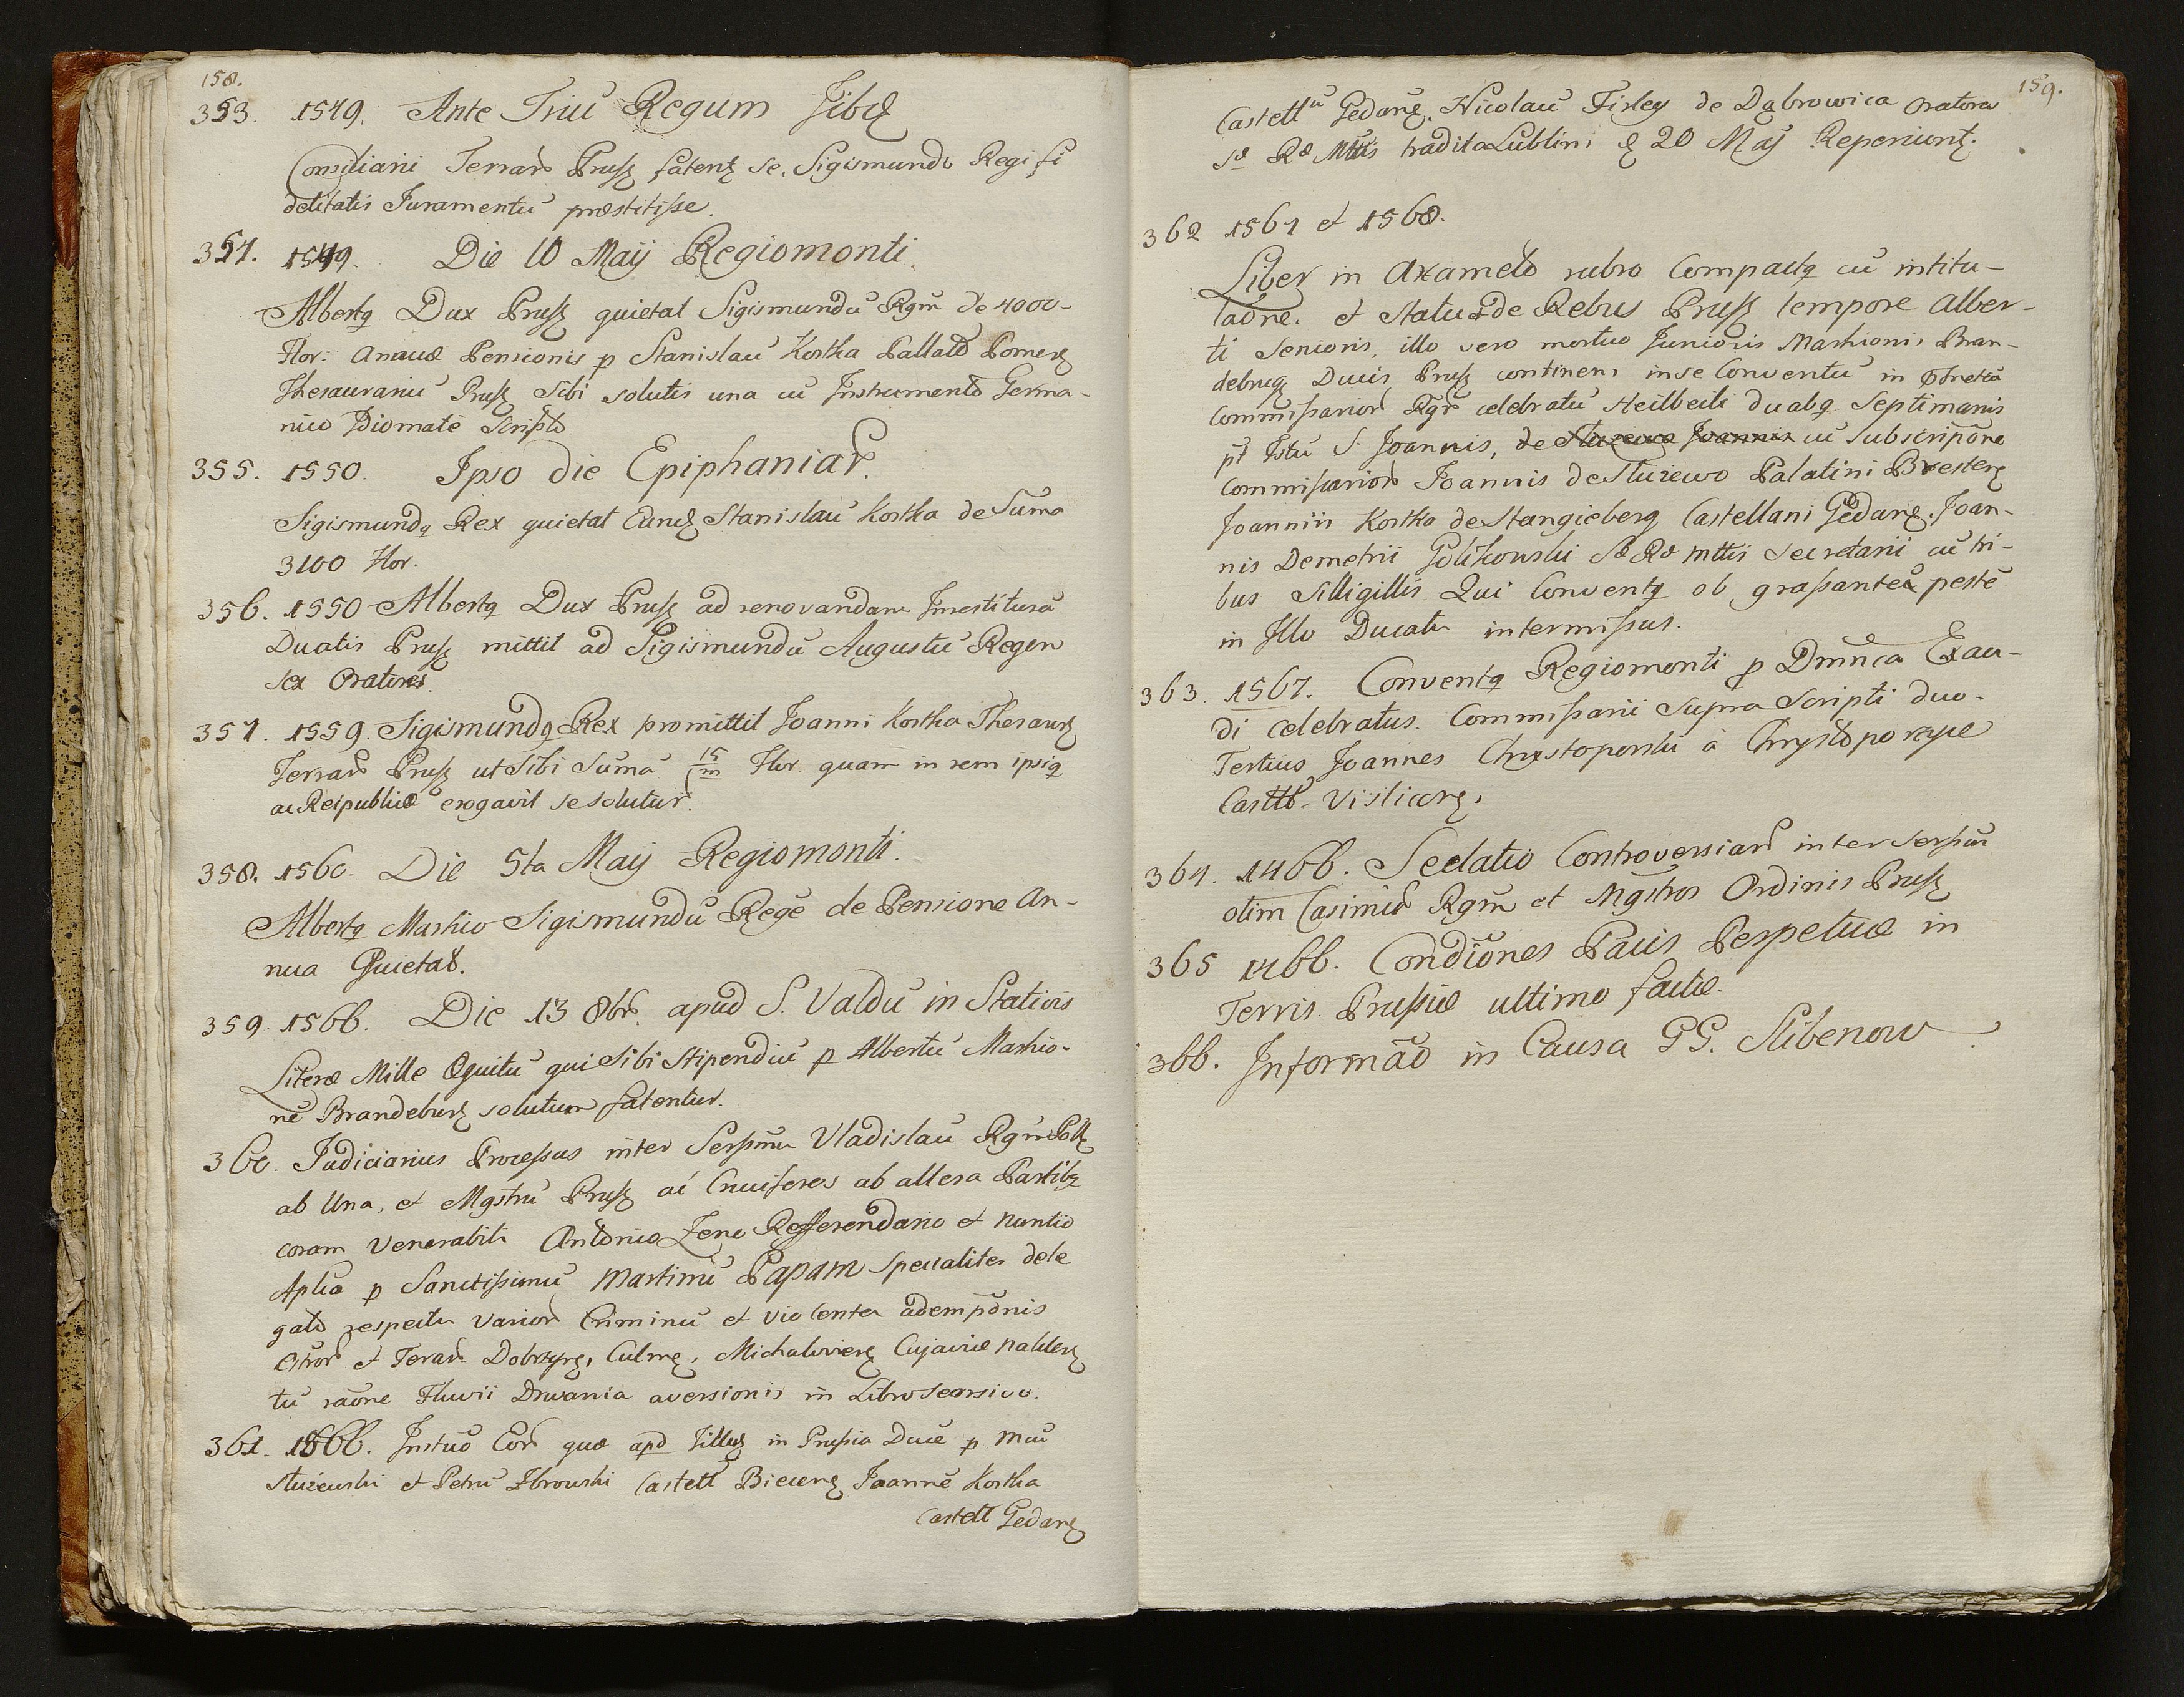 158.
353. 1549. Ante Triū Regum
Consiliarii Terrar Pruss fatent se, Sigismundo Regi fi
delitatis Juramentū præstitisse.
354. 1549. Die 10 Maij Regiomonti.
Albertq Dux Pruss quietat Sigismundū Rgm̄ de 4000-
Flor: Annuæ Pensionis p Stanislaū Kostka Pallatō Pomer
Thesaurariū Pruss sibi solutis una cū Instrumento Germa-
nico Idiomate Scripto
355. 1550. Ipso die Epiphaniar.
Sigismundq Rex quietat Eund Stanislaū Kostka de Suma
3100 Flor.
356. 1550 Albertq Dux Pruss ad renovandam Investiturā
Ducatis Pruss mittit ad Sigismundū Augustū Regem
sex Oratores.
357. 1559. Sigismundq Rex promittit Joanni Kostka Thesaur
Terrar Pruss ut sibi Sumā 15/m Flor. quam in rem ipsiq
ac Reipublicæ erogavit se solutur.
358. 1560. Die 5ta Maij Regiomonti.
Albertq Marhio Sigismundū Regē de Pensione An-
nua Quietat.
359. 1566. Die 13 8br. apud S. Valdū in Stativis
Literæ Mille Equitū qui sibi stipendiū p Albertū Marhio-
nē Brandeburg solutum fatentur.
360. Judiciarius Processus inter Serssmū Vladislaū Rgm̄ Poll
ab Una, et Mgstrū Pruss ac Cruciferos ab altera Partibq
coram Venerabili Antonio Zeno Refferendario et Nuntio
Aplico p Sanctissimū Martinū Papam specialiter dele
gato respectu varior Criminū et violenta ademp̄onis
Cstror et Terrar Dobrzyn, Culmen, Michalovien Cujaviæ
tū raōne Fluvii Drwania aversionis in Libro
361. 1566. eor quæ apd in Prussia Duce p
Służewski et Petrū Zbrowski Castell Biecen Joannē Kostka
Castell Gedan
159.
Castellū Gedan, Nicolaū Firley de Dąbrowica Oratores
Sæ Ræ Mttis tradita Lublini d 20 Maij Reperiunt.
362 1567 et 1568.
Liber in Axameto rubro Compactq cū intitu-
laōne. et Statu de Rebus Pruss tempore Alber-
ti Senioris, illo vero mortuo Junioris Marhionis Bran-
debrug Ducis Pruss continens in se Conventū in
Commissarior Rgr celebratū Heilbeili duabq Septimanis
pt Fstū S. Joannis, de Służewo Joannis cū Subscripōne
Commissarior Joannis de Służewo Palatini Bresten
Joannis Kostka de Stangieberg Castellani Gedan. Joan-
nis Demetrii Solikowski Sæ Ræ Mttis Secretarii cū tri-
bus Silligillis Qui Conventq ob grassantē pestē
in Illo Ducatu intermissus.
363. 1567. Conventq Regiomonti p Dmn̄ca Exau-
di celebratus. Commissarii Supra Scripti duo.
Tertius Joannes Chrystoporski à Chrystoporzyce
Castlb. Vislicen.
364. 1466. Sedatio Controversiar inter Serssm̄
olim Casimir Rgm̄ et Mgstros Ordinis Pruss
365 1466. Condiōnes Pacis Perpetuæ in
Terris Prussiæ ultimo factæ.
366. Informāo in Causa GG. Slibenow